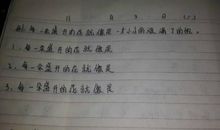 月 日
例：每一朵盛开的花就像是一张小小的
1、每一朵盛开的花就像是
2、每一朵盛开的花就像是
3、每一朵盛开的花就像是